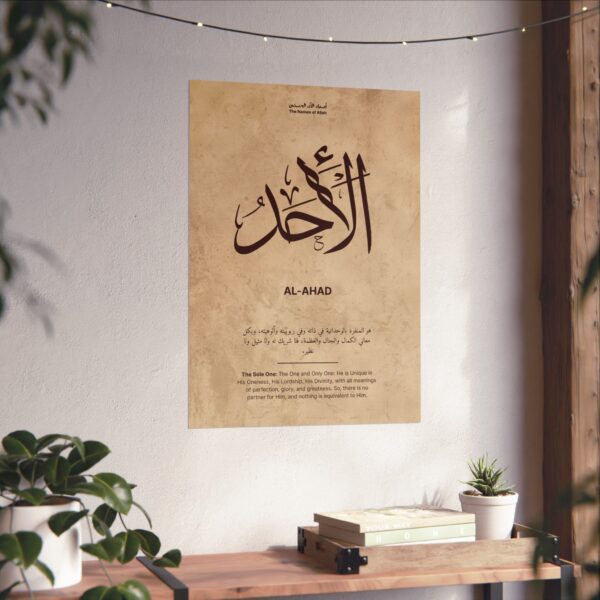 أسماء الله الحسنى
The Names of Allah
الأحد
AL-AHAD
هو المنفرد بالوحدانية في ذاته وفي ربوبيته وألوهيته، وبكل
معاني الكمال والجلال والعظمة، فلا شريك له ولا مثيل ولا
نظير.
The Sole One: The One and Only One: He is Unique in
His Oneness, His Lordship, His Divinity, with all meanings
of perfection, glory, and greatness. So, there is no
partner for Him, and nothing is equivalent to Him.
HOME